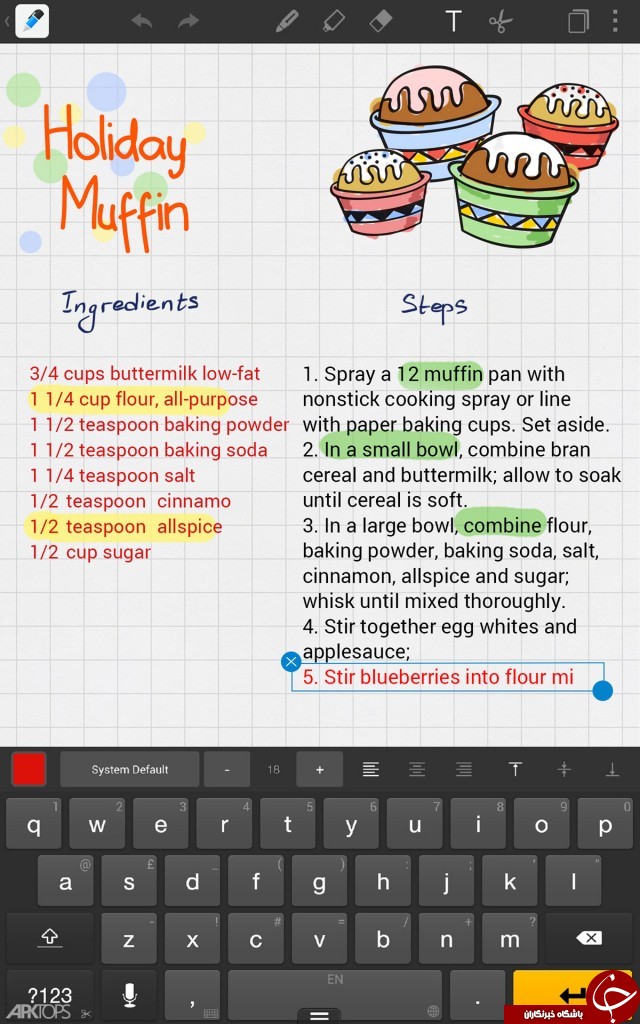 Holiday
Muffin
Ingredients
3/4 cups buttermilk low-fat
1 1/4 cup flour, all-purpose
1 1/2 teaspoon baking powder
1 1/2 teaspoon baking soda
1 1/4 teaspoon salt
1/2 teaspoon cinnamo
1/2 teaspoon allspice
1/2 cup sugar
Steps
1. Spray a 12 muffin pan with
nonstick cooking spray or line
with paper baking cups. Set aside.
2. In a small bowl, combine bran
cereal and buttermilk; allow to soak
until cereal is soft.
3. In a large bowl, combine flour,
baking powder, baking soda, salt,
cinnamon, allspice and sugar;
whisk until mixed thoroughly.
4. Stir together egg whites and
applesauce;
5. Stir blueberries into flour mi
T
System Default - 18 +
1 2 3 4 5 6 7 8 9 0
q w e r t y u i o p
@ £ _ ( ) : ; ' "
a s d f g h j k l
- ! # = / + ?
z x c v b n m
?123 , EN .
ARKTOPS
باشگاه خبرنگاران